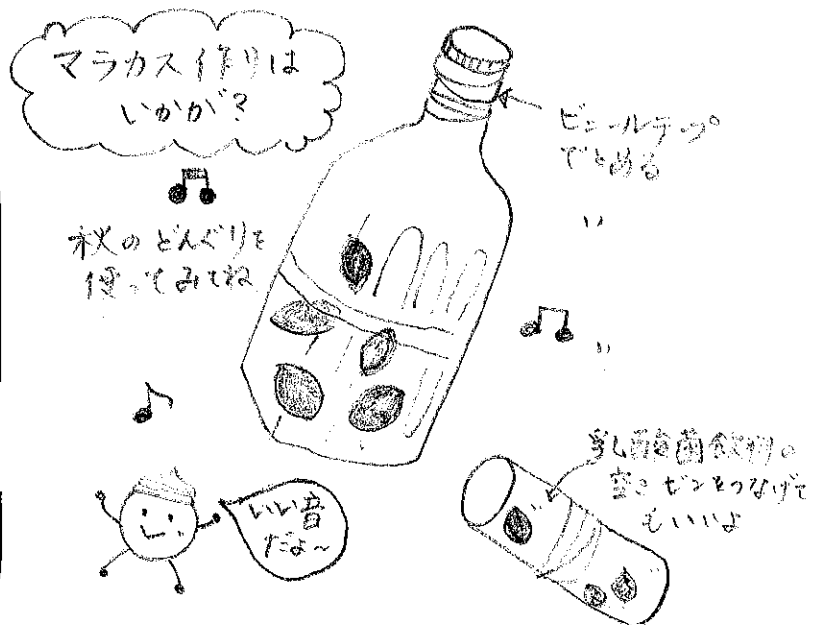 マラカス作りは
いかが?
ビニールテープ
でとめる
秋のどんぐりを
使ってみてね
乳酸菌飲料の
空きビンをつなげて
もいいよ
いい音
だよ~